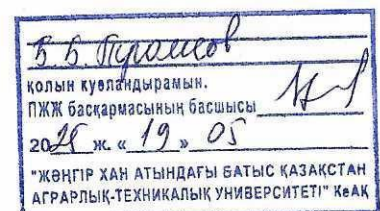 Б Б.
қолын куәландырамын.
ПЖЖ басқармасының басшысы
20 ж. « 19 » 05
"ЖӘҢГІР ХАН АТЫНДАҒЫ БАТЫС ҚАЗАҚСТАН
АГРАРЛЫҚ-ТЕХНИКАЛЫҚ УНИВЕРСИТЕТІ" КеАҚ